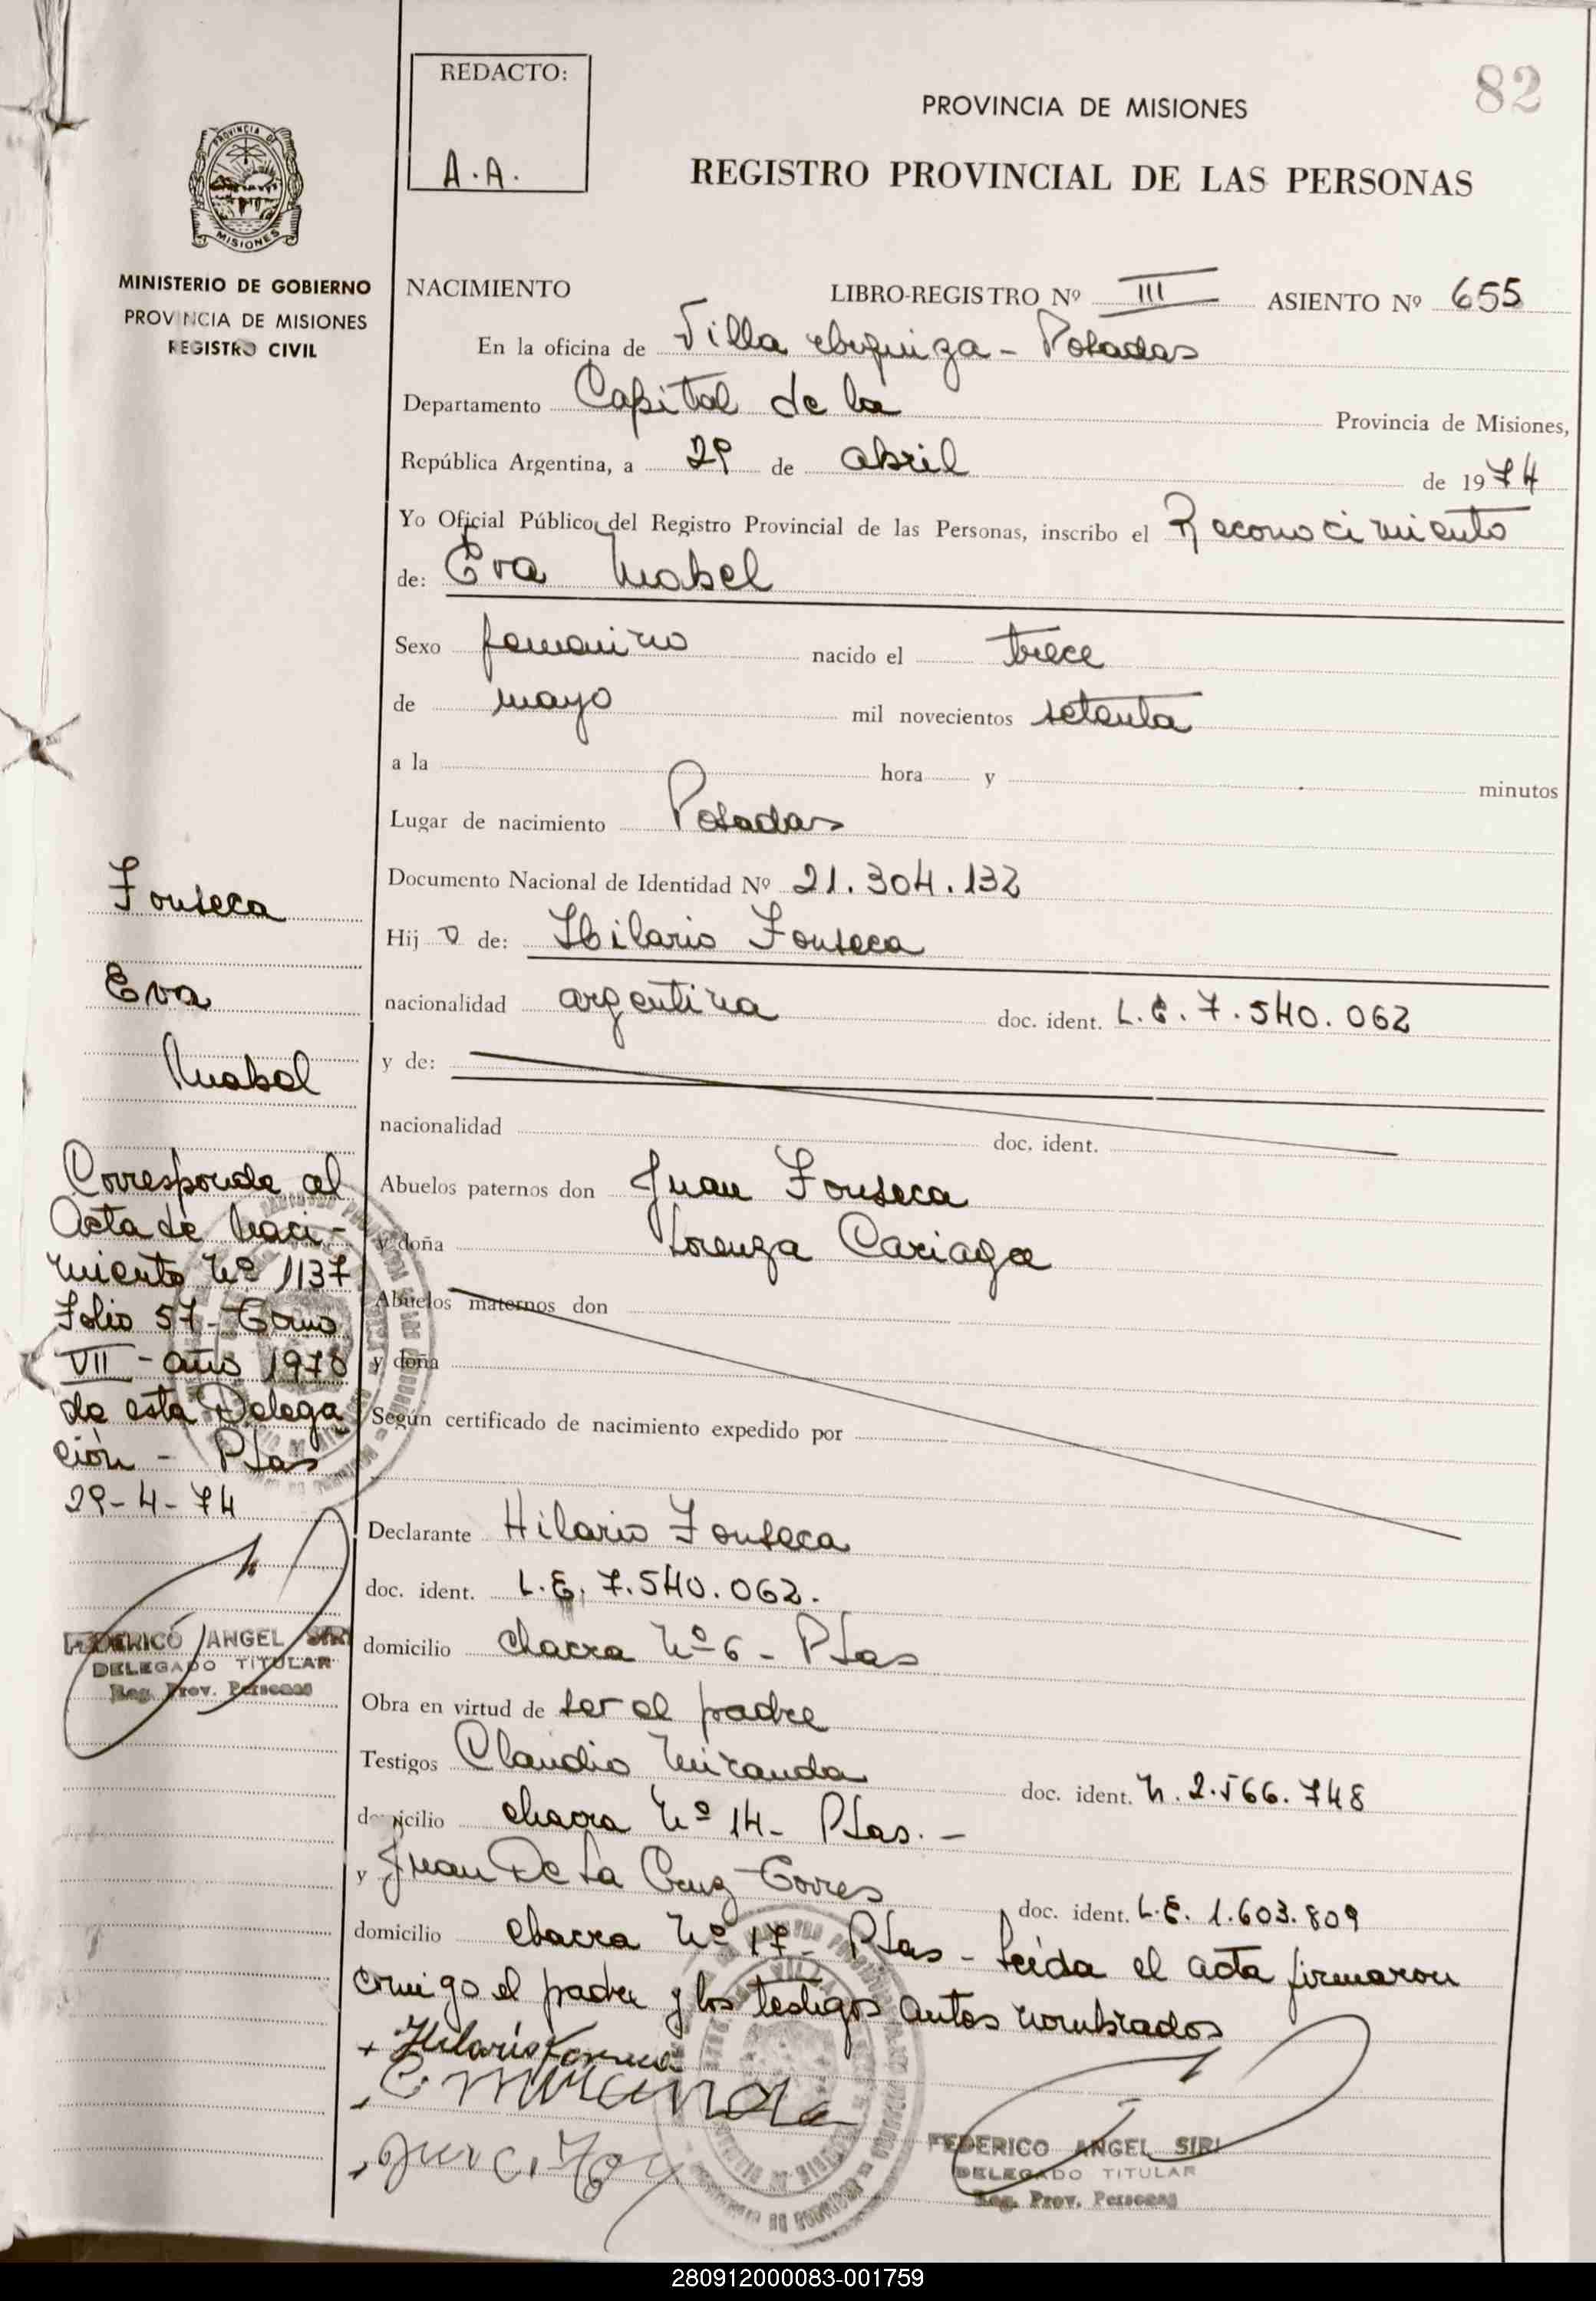 82
REDACTO:
A.A.
PROVINCIA DE MISIONES
REGISTRO PROVINCIAL DE LAS PERSONAS
PROVINCIA DE
MISIONES
MINISTERIO DE GOBIERNO
PROVINCIA DE MISIONES
REGISTRO CIVIL
NACIMIENTO LIBRO-REGISTRO Nº III ASIENTO Nº 655
En la oficina de Villa Urquiza - Posadas
Departamento Capital de la Provincia de Misiones,
República Argentina, a 29 de abril de 1974
Yo Oficial Público, del Registro Provincial de las Personas, inscribo el Reconocimiento
de: Eva Mabel
Sexo femenino nacido el trece
de mayo mil novecientos setenta
a la hora y minutos
Lugar de nacimiento Posadas
Documento Nacional de Identidad Nº 21.304.132
Hij a de: Hilario Fonseca
nacionalidad argentina doc. ident. L.E. 7.540.062
y de:
nacionalidad doc. ident.
Abuelos paternos don Juan Fonseca
y doña Lorenza Cariaga
Abuelos maternos don
y doña
Según certificado de nacimiento expedido por
Declarante Hilario Fonseca
doc. ident. L.E. 7.540.062.
domicilio chacra Nº 6 - Pdas
Obra en virtud de ser el padre
Testigos Claudio Miranda doc. ident. M. 2.566.748
domicilio chacra Nº 14 - Pdas. -
y Juan De La Cruz Torres doc. ident. L.E. 1.603.809
domicilio chacra Nº 17 - Pdas - Leída el acta firmaron
conmigo el padre y los testigos antes nombrados
Hilario Fonseca
C Miranda
FEDERICO ANGEL SIRI
DELEGADO TITULAR
Reg. Prov. Personas
Fonseca
Eva
Mabel
Corresponde al
Acta de Naci-
miento Nº 1137
Folio 57 - Tomo
VII - año 1970
de esta Delega
ción - Pdas
29-4-74
FEDERICO ANGEL SIRI
DELEGADO TITULAR
Reg. Prov. Personas
280912000083-001759